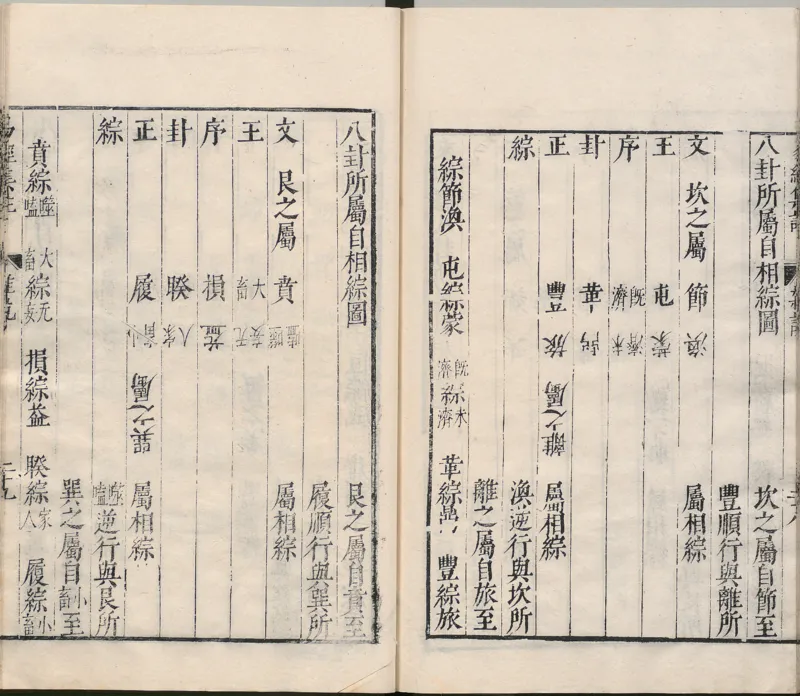 八卦所屬自相綜圖 坎之屬自節至
豐順行與離所
文 坎之屬 節 渙 屬相綜
王 屯 蒙
序 既濟 未濟
卦 革 鼎
正 豐 旅 離之屬 屬相綜
綜 渙逆行與坎所
離之屬自旅至
綜節渙 屯綜蒙 既濟綜未濟 革綜鼎 豐綜旅
八卦所屬自相綜圖 艮之屬自賁至
履順行與巽所
文 艮之屬 賁 噬嗑 屬相綜
王 大畜 无妄
序 損 益
卦 睽 家人
正 履 小畜 巽之屬 屬相綜
綜 噬嗑逆行與艮所
巽之屬自小畜至
賁綜噬嗑 大畜綜无妄 損綜益 睽綜家人 履綜小畜
二十九